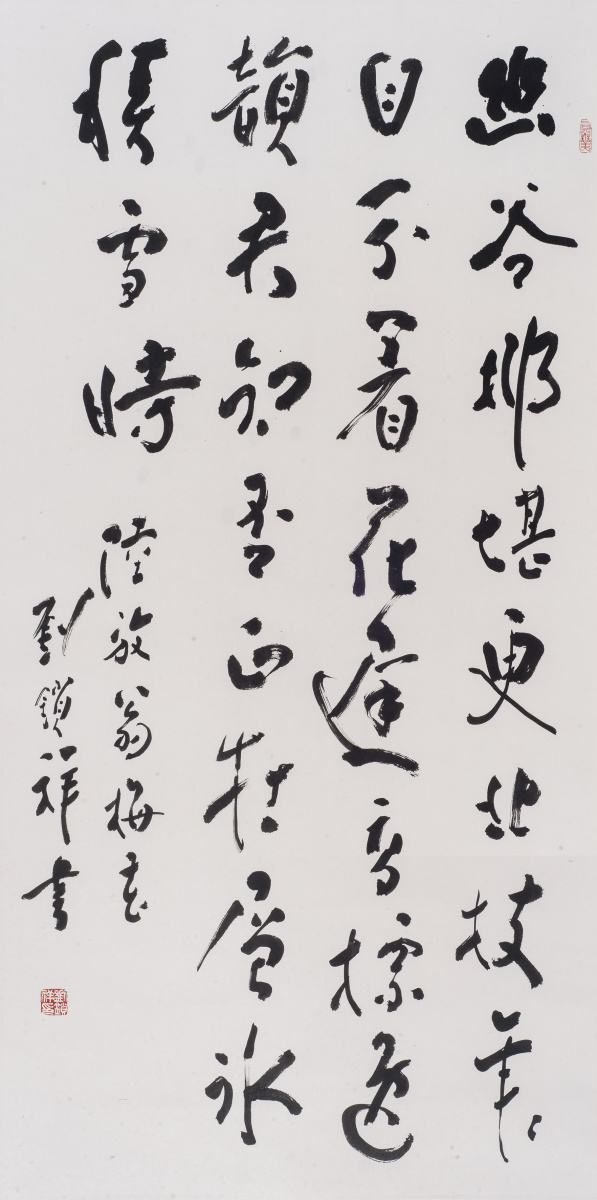 幽谷那堪更北枝年〻
自分着花遲高標逸
韻君知否正在層冰
積雪時
陸放翁梅花
劉鎖祥書